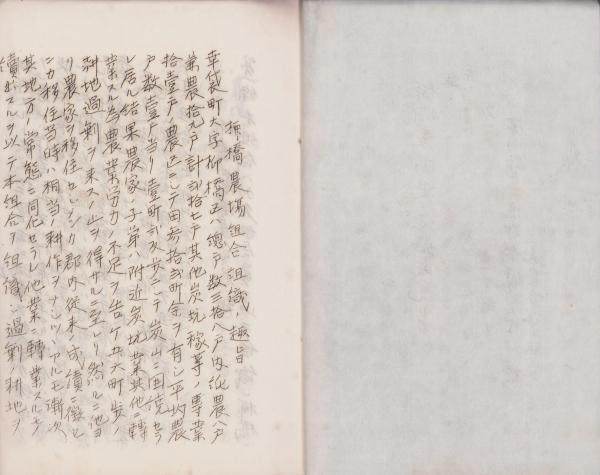 柳橋農場組合組織ノ趣旨
幸袋町大字柳橋区ハ總戸数三拾八戸内純農八戸
兼農拾九戸計弐拾七戸其他炭坑稼等ノ専業
拾壹戸農区ニシテ田参拾弐町余ヲ有シ平均農
戸数壹戸当リ壹町弐反歩ニシテ炭山ニ囲繞セラ
レ居ル結果農家ノ子弟ハ附近炭坑業其他ニ轉
業スル為農業労力ノ不足ヲ告ケ五六町歩ノ
耕地過剰ヲ来スノ止ヲ得サルニ至レリ然ルニ他ヨ
リ農家ヲ移住セシメンカ郡内従来ノ成績ニ徴ヒ
ニカ移住当時ハ相当ノ耕作ヲナシツヽアルモ漸次
其地方ノ常態ニ同化セラレ他業ニ轉業スルモノ
續出スルヲ以テ本組合ヲ組織シ過剰ノ耕地ヲ